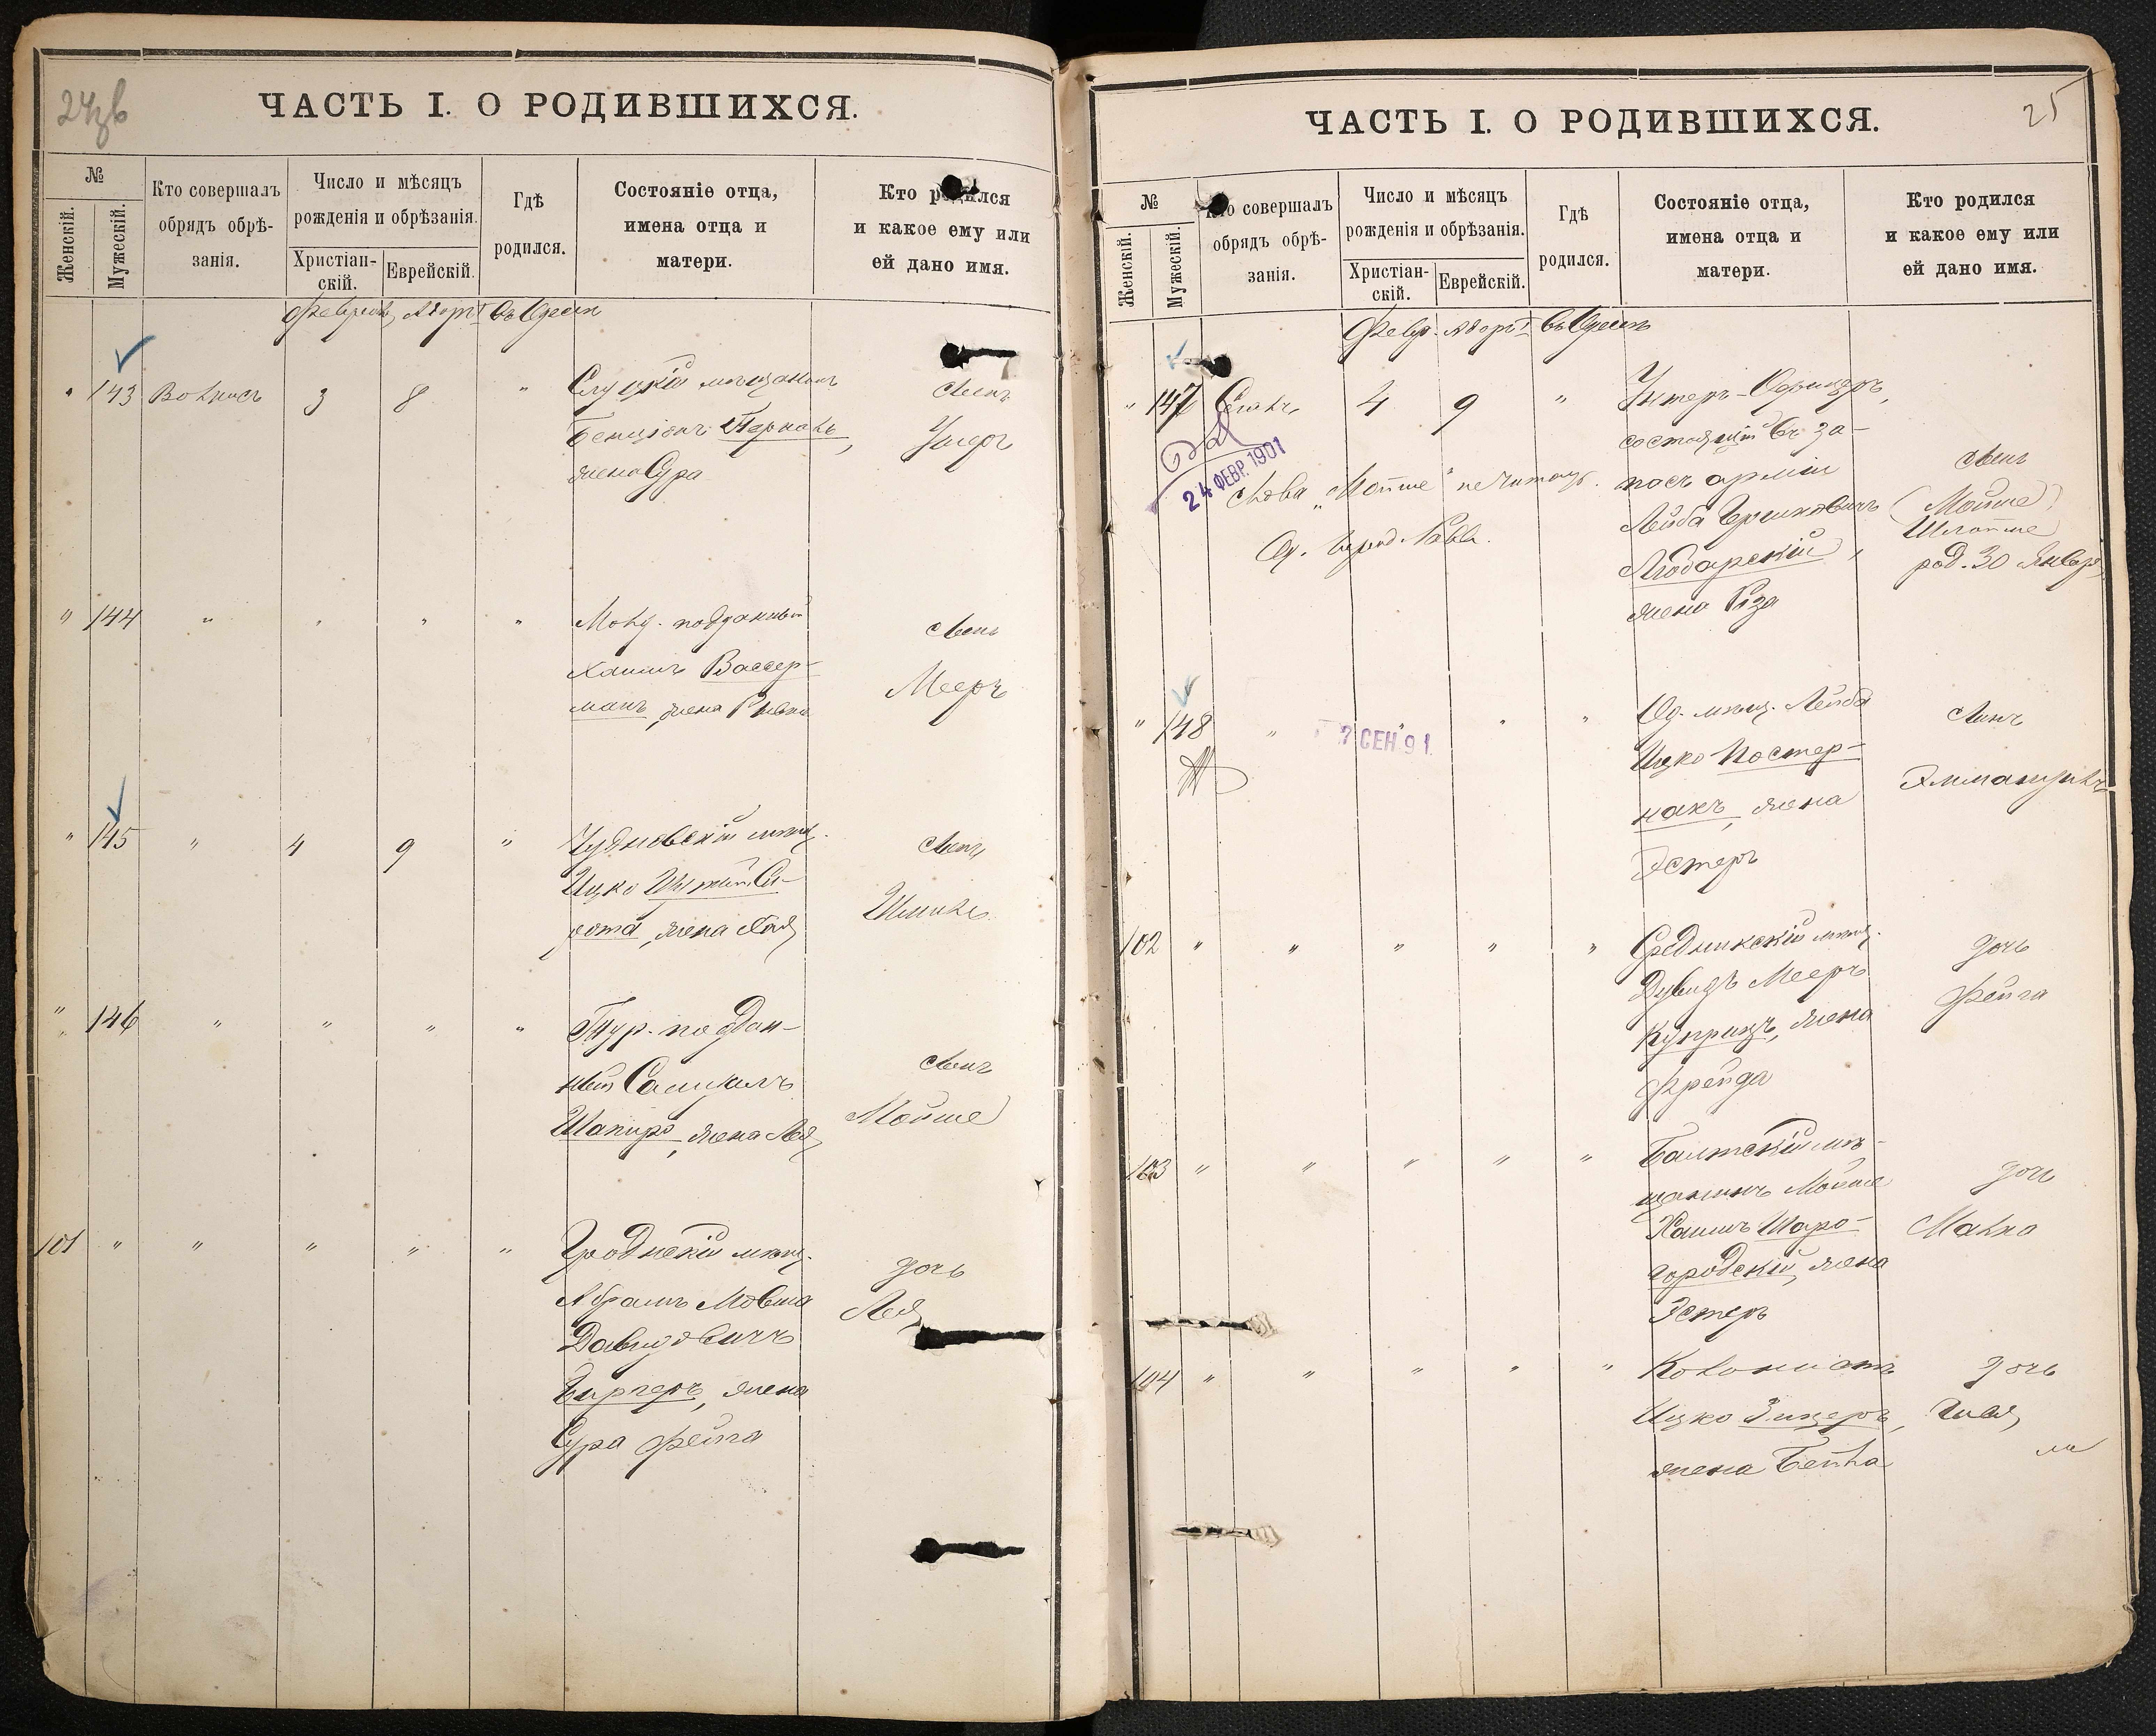 24об
ЧАСТЬ I. О РОДИВШИХСЯ.
№
Женскій.
Мужескій.
Кто совершалъ
обрядъ обрѣ-
занія.
Число и мѣсяцъ
рожденія и обрѣзанія.
Христіан-
скій.
Еврейскій.
Гдѣ
родился.
Состояніе отца,
имена отца и
матери.
Кто родился
и какое ему или
ей дано имя.
Февраль Адоръ I въ Одессѣ
" 143 3 8 " Слуцкій мѣщанинъ
Бенціонъ
жена Сура
сынъ
" 144 " " " " подданный
Хаимъ Вассер-
манъ, жена Ривка
сынъ
Мееръ
" 145 " 4 9 " Чудновскій мѣщ.
Ицко
рота, жена Хая
сынъ
Шмиль
" 146 " " " " Тур. поддан-
ный Самуилъ
Шапиро, жена Лея
сынъ
Мойше
101 " " " " " Гродненскій мѣщ.
Абрамъ Мовша
Давидовичъ
Бергеръ, жена
Сура Фейга
дочь
Лея
25
ЧАСТЬ I. О РОДИВШИХСЯ.
№
Женскій.
Мужескій.
Кто совершалъ
обрядъ обрѣ-
занія.
Число и мѣсяцъ
рожденія и обрѣзанія.
Христіан-
скій.
Еврейскій.
Гдѣ
родился.
Состояніе отца,
имена отца и
матери.
Кто родился
и какое ему или
ей дано имя.
Февр. Адоръ I въ Одессѣ
" 147 4 9 " Унтеръ-Офицеръ,
состоящій въ за-
пасѣ арміи
Лейба Гершковичъ
Людарскій,
жена Роза
сынъ
(Мойше)
Шлойме
род. 30 Января
24 ФЕВР. 1901
Слова „Мойше" не читать.
Од. Город. Равв.
" 148 " " " " Од. мѣщ. Лейба
Ицко Постер-
накъ, жена
Эстеръ
сынъ
Эммануилъ
7 СЕН 91.
102 " " " " " мѣщ.
Дувидъ Мееръ
Куприцъ, жена
Фрейда
дочь
Фейга
103 " " " " " Балтскій мѣ-
щанинъ Мойше
Хаимъ Шаро-
городскій, жена
Эстеръ
дочь
Малка
104 " " " " " Колонистъ
Ицко Зингеръ,
жена Бейла
дочь